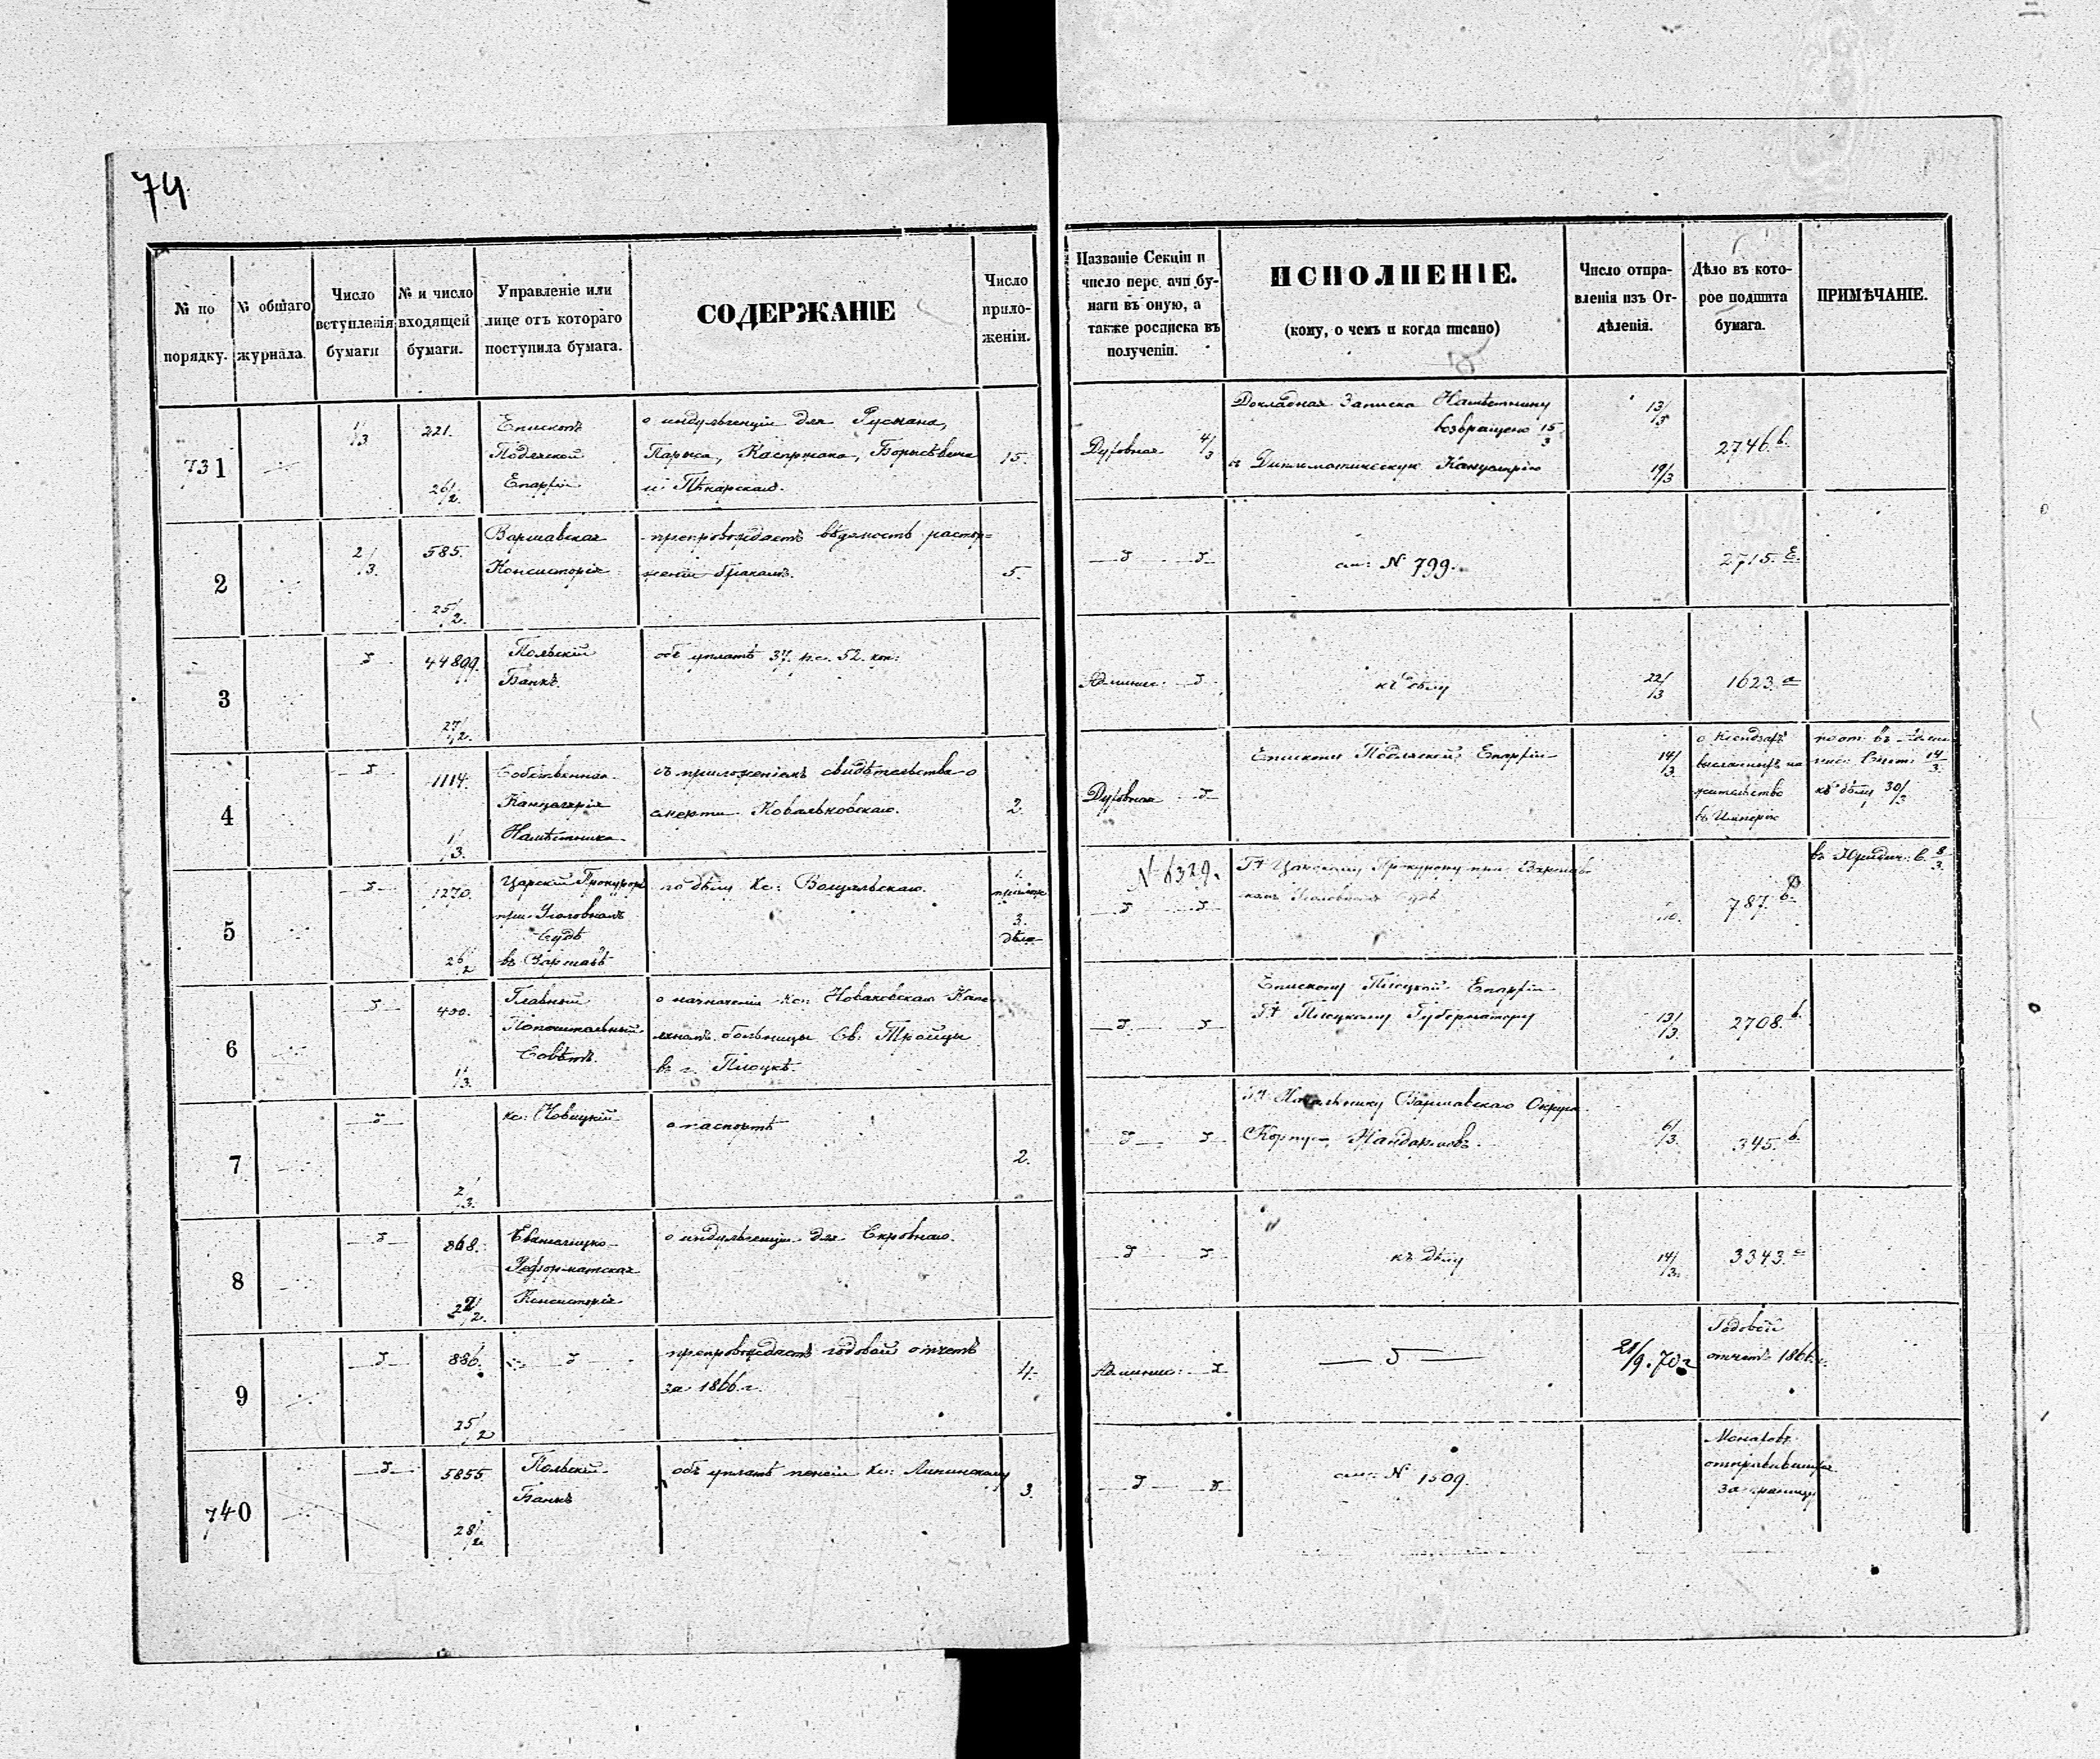 74
№ по порядку.
№ общаго журнала.
Число вступленія бумаги
№ и число входящей бумаги.
Управленіе или лице отъ котораго поступила бумага.
СОДЕРЖАНІЕ
Число приложеній.
Названіе Секціи и число перед ачи бумаги въ оную, а также росписка въ полученіи.
ИСПОЛНЕНІЕ.
(кому, о чемъ и когда писано)
Число отправленія изъ Отдѣленія.
Дѣло въ которое подшита бумага.
ПРИМѢЧАНІЕ.
731
1/3
221.
26/2.
Епископъ
Подляской
Епархіи
о индульгенціи для
и Пѣкарскаго.
15.
Духовная 4/3
Докладная Записка Намѣстнику
возвращено 15/3
въ Дипломатическую Канцелярію
13/3
19/3
2746. b.
2
2/3.
585.
25/2.
Варшавская
Консисторія
препровождаетъ вѣдомость растор=
женія бракамъ.
5.
см: № 799.
2715. E.
3
44899.
27/2.
Польскій
Банкъ.
объ уплатѣ 37. р.с. 52. коп:
Админис:
къ дѣлу
22/3
1623. a
4
1114.
1/3.
Собственная
Канцелярія
Намѣстника
съ приложеніемъ свидѣтельства о
смерти Ковальковскаго.
2.
Духовная
Епископу Подляской Епархіи
14/3.
о Ксендзахъ
высланныхъ на
жительство
въ Имперію
14/3.
къ дѣлу 30/3
5
1270.
26/2
Царскій Прокуроръ
при Уголовномъ
Судѣ
въ Варшавѣ
по дѣлу Кс:
3.
дѣла
№ 6329.
Гну Царскому Прокурору при Варшав-
скомъ Уголовномъ Судѣ
787. b.
въ Юридич: С. 8/3.
6
400.
1/3.
Главный
Попечительный
Совѣтъ.
о назначеніи кс: Новаковскаго Капе-
ляномъ больницы Св: Тройцы
въ г. Плоцкѣ.
Епископу Плоцкой Епархіи
Гну Плоцкому Губернатору
13/3.
2708. b.
7
2/3.
кс: Новицкій
о паспортѣ
2.
Гну Начальнику Варшавскаго Округа
Корпуса Жандармовъ.
6/3.
345. b.
8
868.
22/2.
Евангелицко-
Реформатская
Консисторія
о индульгенціи для Скровнаго.
къ дѣлу
14/3.
3343.
9
886.
25/2
препровождаетъ годовой отчетъ
за 1866 г.
4.
Админис:
21/9. 70 г
Годовой
отчетъ 1866 г.
740
5855.
28/2
Польскій
Банкъ
объ уплатѣ пенсіи Кс: Липинскому
3.
см: № 1509.
Монаховъ
отправившихся
за границу